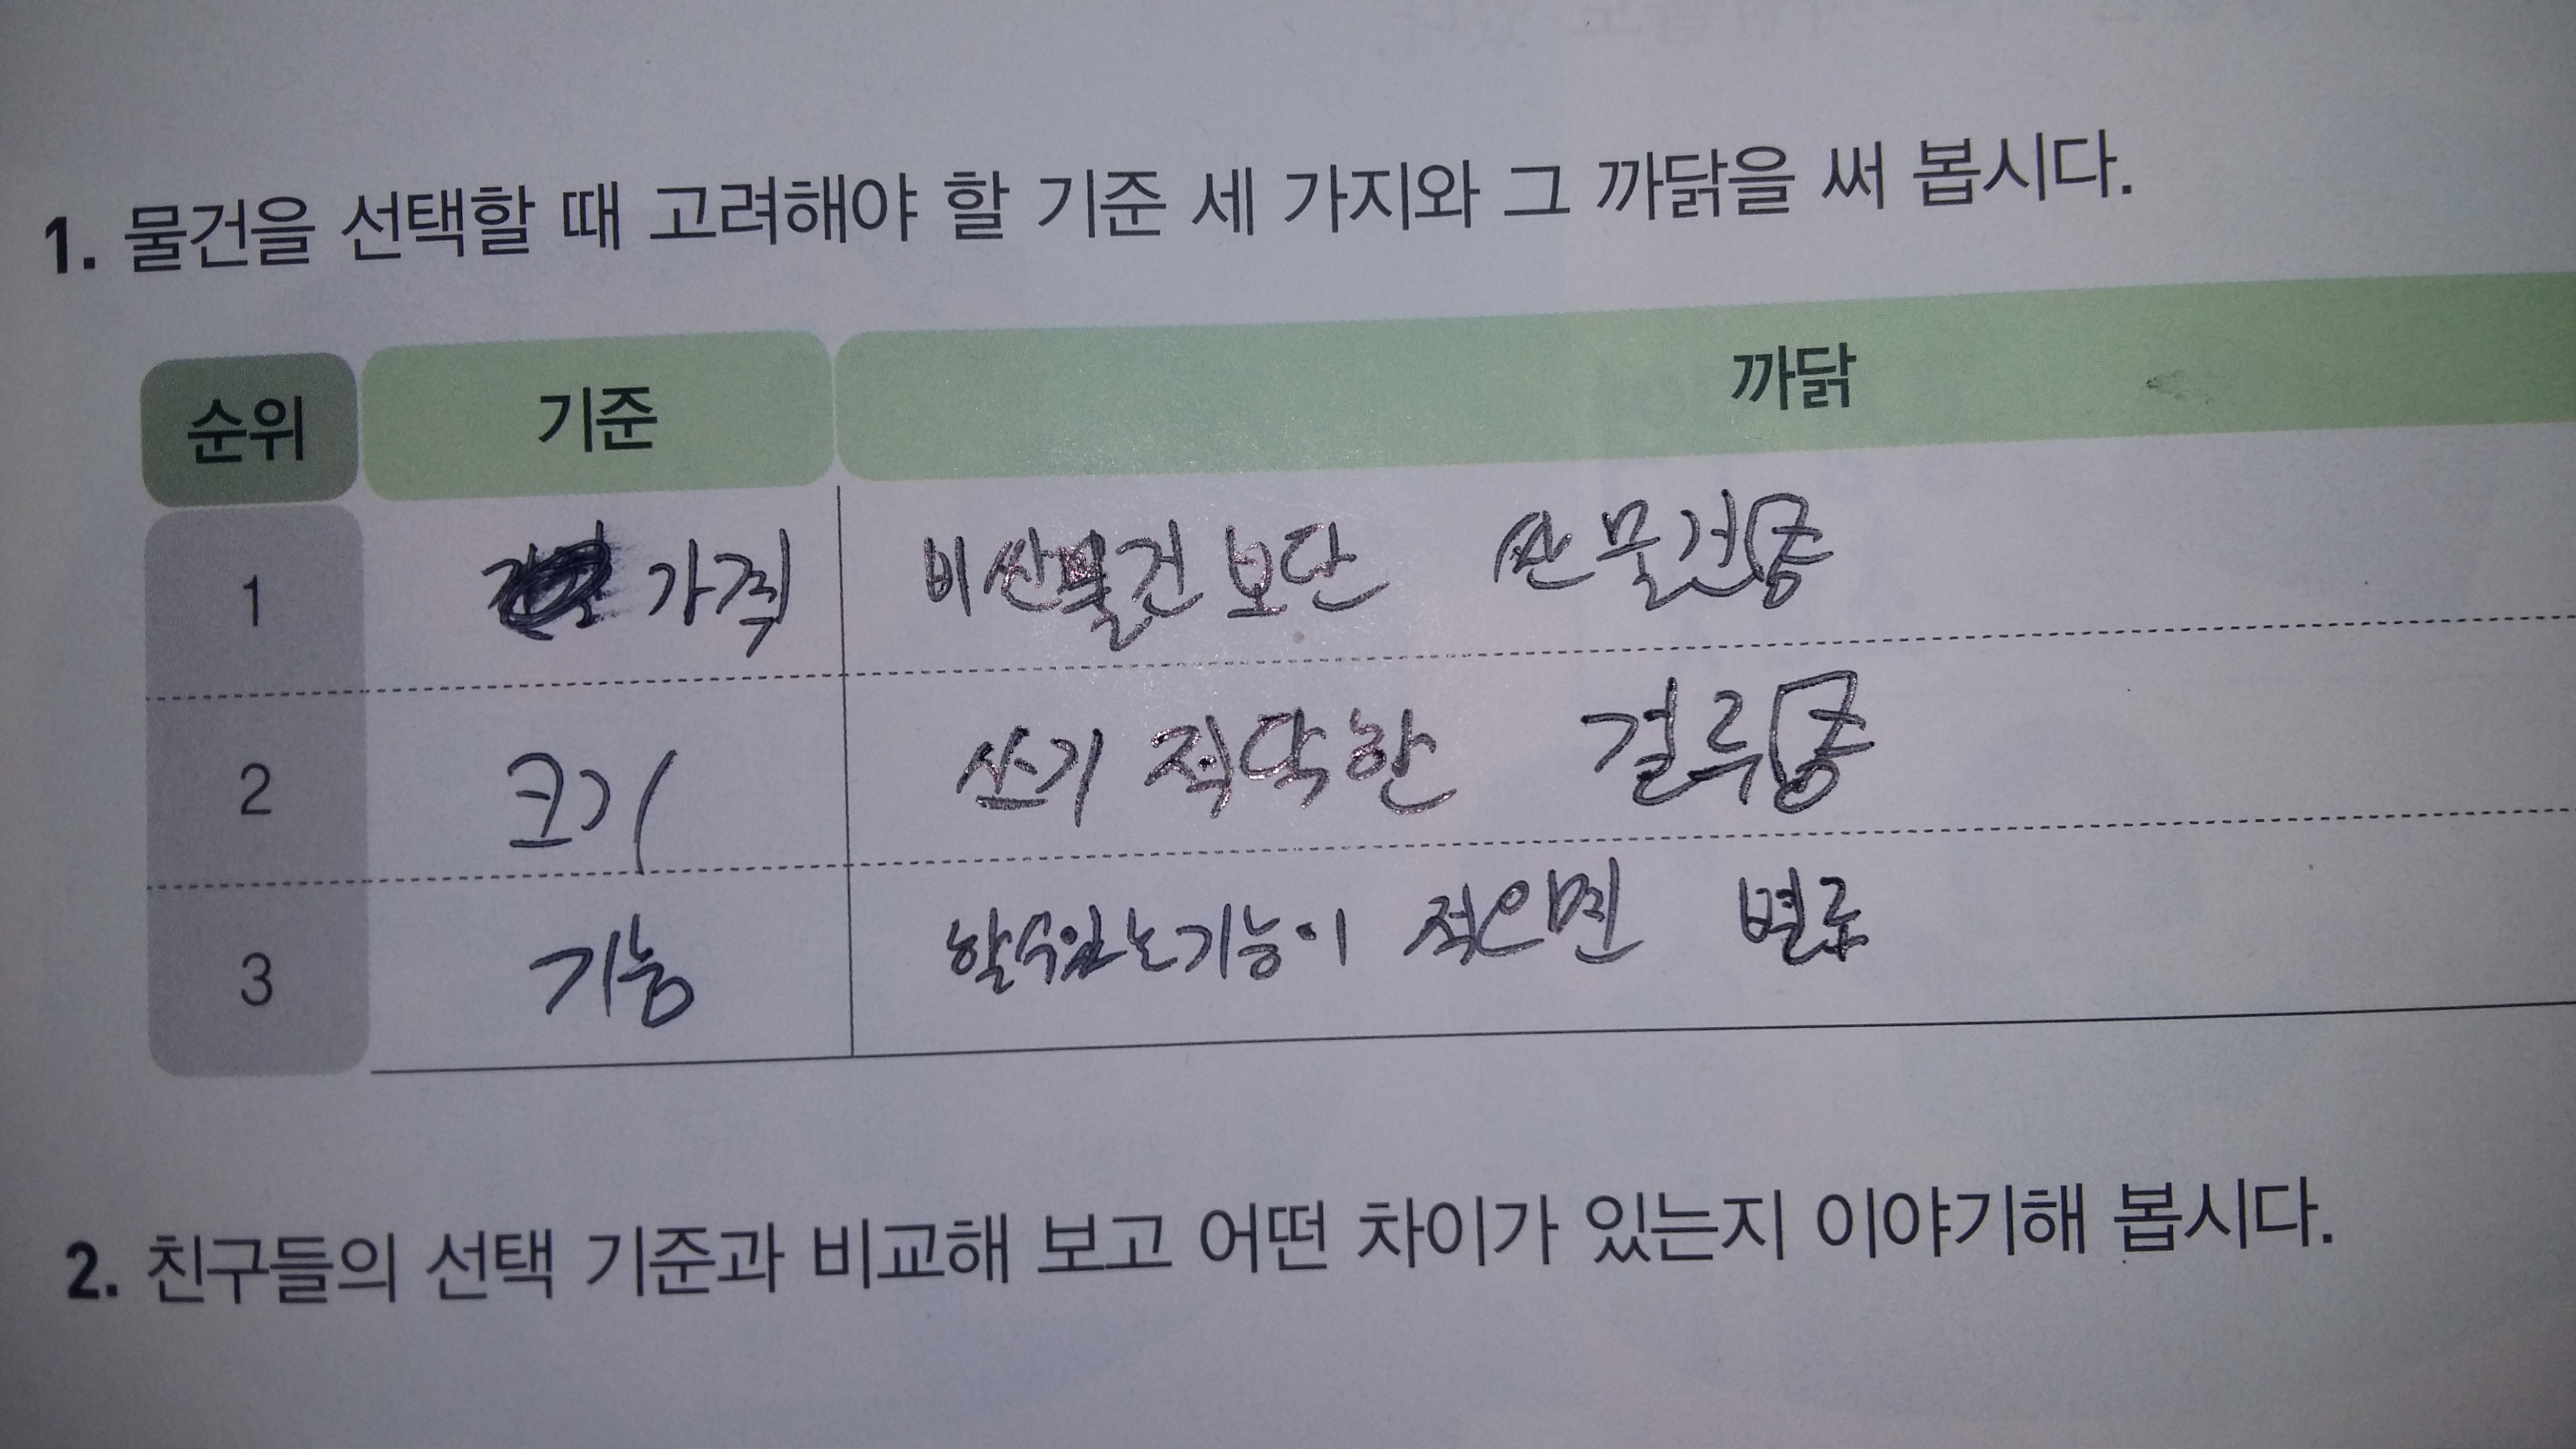 1. 물건을 선택할 때 고려해야 할 기준 세 가지와 그 까닭을 써 봅시다.
순위 기준 까닭
1 가격 비싼물건 보단 싼 물건
2 크기 쓰기 적당한 걸루
3 기능 할수있는기능이 적으면 별로
2. 친구들의 선택 기준과 비교해 보고 어떤 차이가 있는지 이야기해 봅시다.